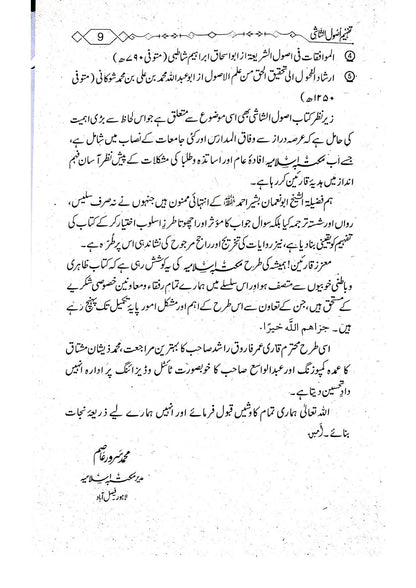 تفہیم اصول الشاشی 9
④ الموافقات فی اصول الشریعۃ از ابو اسحاق ابراہیم شاطبی (متوفی ۷۹۰ھ)
⑤ ارشاد الفحول الی تحقیق الحق من علم الاصول از ابو عبداللہ محمد بن علی بن محمد شوکانی (متوفی
۱۲۵۰ھ)
زیر نظر کتاب اصول الشاشی بھی اسی موضوع سے متعلق ہے جو اس لحاظ سے بڑی اہمیت
کی حامل ہے کہ عرصہ دراز سے وفاق المدارس اور کئی جامعات کے نصاب میں شامل ہے،
جسے اب مکتبہ اسلامیہ افادۂ عام اور اساتذہ و طلبا کی مشکلات کے پیش نظر آسان فہم
انداز میں ہدیۂ قارئین کر رہا ہے۔
ہم فضیلۃ الشیخ ابو نعمان بشیر احمد کے انتہائی ممنون ہیں جنہوں نے نہ صرف سلیس،
رواں اور شستہ ترجمہ کیا بلکہ سوال جواب کا مؤثر اور اچھوتا طرز و اسلوب اختیار کر کے کتاب کی
تفہیم کو یقینی بنا دیا ہے، نیز روایات کی تخریج اور راجح مرجوح کی نشاندہی اس پر طرہ ہے۔
معزز قارئین! ہمیشہ کی طرح مکتبہ اسلامیہ کی یہ کوشش رہی ہے کہ کتاب ظاہری
و باطنی خوبیوں سے متصف ہو اور اس سلسلے میں ہمارے تمام رفقاء و معاونین خصوصی شکریے
کے مستحق ہیں، جن کے تعاون سے اس طرح کے اہم اور مشکل امور پایۂ تکمیل تک پہنچ رہے
ہیں۔ جزاهم الله خيرًا.
اسی طرح محترم قاری عمر فاروق راشد صاحب کا بہترین مراجعت، محمد ذیشان مشتاق
کا عمدہ کمپوزنگ اور عبدالواسع صاحب کا خوبصورت ٹائٹل و ڈیزائنگ پر ادارہ انہیں
داد تحسین دیتا ہے۔
اللہ تعالیٰ ہماری تمام کاوشیں قبول فرمائے اور انہیں ہمارے لیے ذریعۂ نجات
بنائے۔ آمین
محمد سرور عاصم
مدیر مکتبہ اسلامیہ
لاہور فیصل آباد